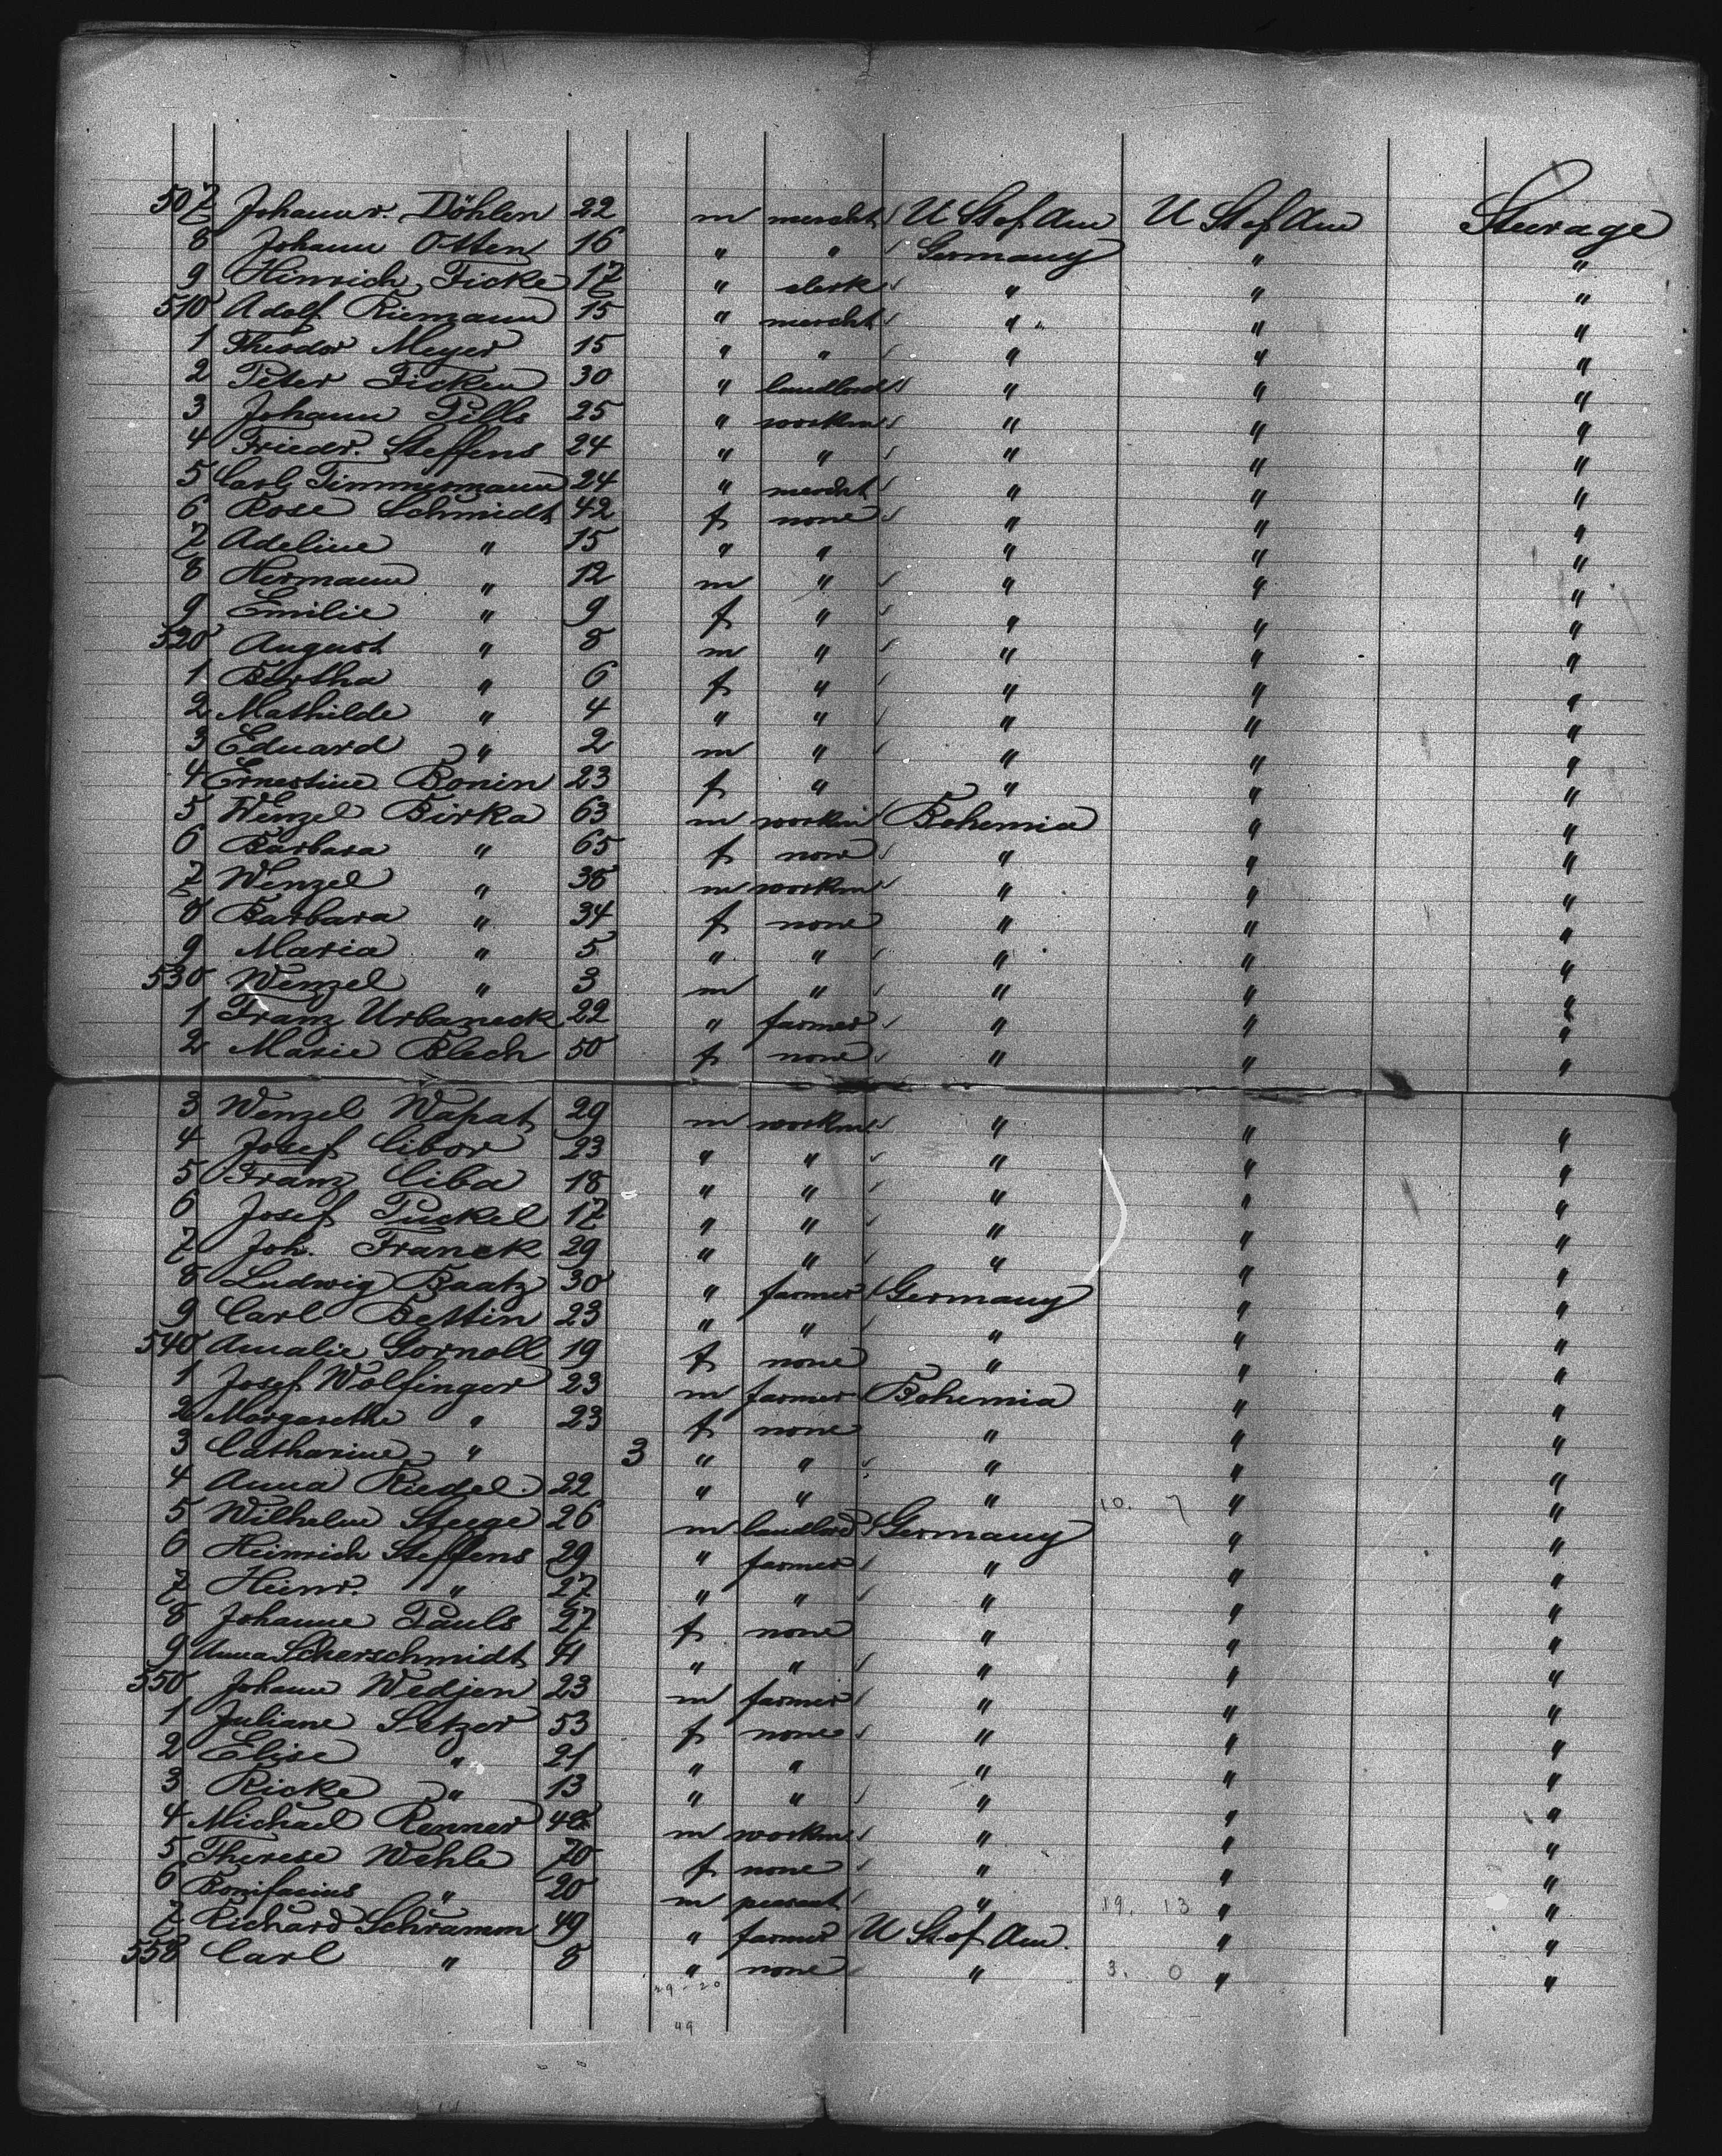 507 Johann. Döhlen 22 m mercht U St of Am U St of Am Steerage
8 Johann Otten 16 " " Germany " "
9 Hinrich Ficke 17 " clerk " " "
510 Adolf Riemann 15 " mercht " " "
1 Theodor Meyer 15 " " " " "
2 Peter Ficken 30 " landlord " " "
3 Johann Pills 25 " workm " " "
4 Friedr. Steffens 24 " " " " "
5 Carl Timmermann 24 " mercht " " "
6 Rose Schmidt 42 f none " " "
7 Adeline " 15 " " " " "
8 Hermann " 12 m " " " "
9 Emilie " 9 f " " " "
520 August " 8 m " " " "
1 Bertha " 6 f " " " "
2 Mathilde " 4 " " " " "
3 Eduard " 2 m " " " "
4 Ernestine Bonin 23 f " " " "
5 Wenzel Birka 63 m workm Bohemia " "
6 Barbara " 65 f none " " "
7 Wenzel " 38 m workm " " "
8 Barbara " 34 f none " " "
9 Maria " 5 " " " " "
530 Wenzel " 3 m " " " "
1 Franz Urbaneck 22 " farmer " " "
2 Marie Blech 50 f none " " "
3 Wenzel Wapat 29 m workm " " "
4 Josef Cibor 23 " " " " "
5 Franz Ciba 18 " " " " "
6 Josef Puckel 17 " " " " "
7 Joh. Franek 29 " " " " "
8 Ludwig Baatz 30 " farmer Germany " "
9 Carl Bettin 23 " " " " "
540 Amalie Gornoll 19 f none " " "
1 Josef Wolfinger 23 m farmer Bohemia " "
2 Margarethe " 23 f none " " "
3 Catharine " 3 " " " " "
4 Anna Riedel 22 " " " 10. 7 " "
5 Wilhelm Steege 26 m landlord Germany " "
6 Heinrich Steffens 29 " farmer " " "
7 Heinr. " 27 " " " " "
8 Johanne Pauls 27 f none " " "
9 Anna Scherschmidt 41 " " " " "
550 Johann Wedjen 23 m farmer " " "
1 Juliane Setzer 53 f none " " "
2 Elise " 21 " " " " "
3 Ricke " 13 " " " " "
4 Michael Renner 48 m workm " " "
5 Therese Wehle 70 f none " " "
6 Bonifacius " 20 m peasant " 19. 13 " "
7 Richard Schramm 49 " farmer U St of Am. " "
558 Carl " 8 " none " 3. 0 " "
29-20
49